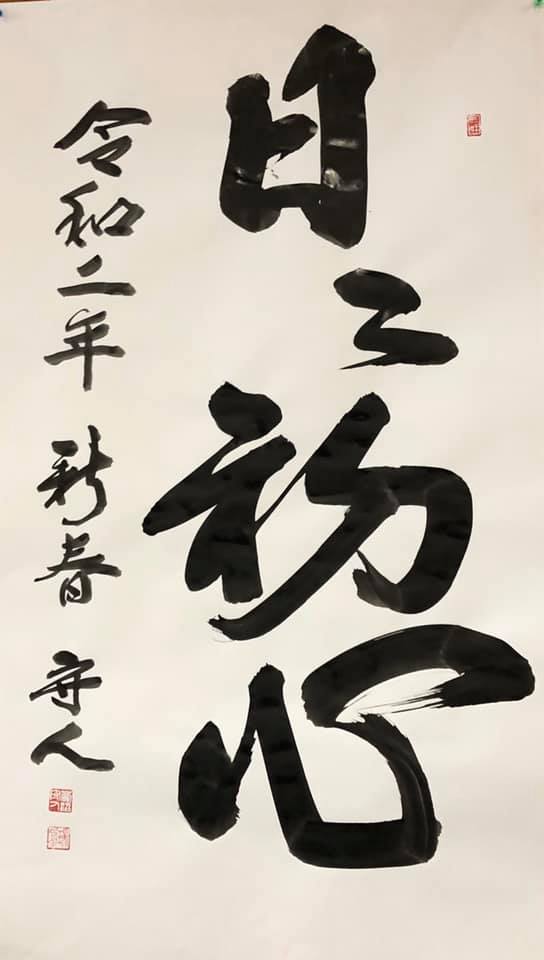 日々初心
令和二年 新春 守人